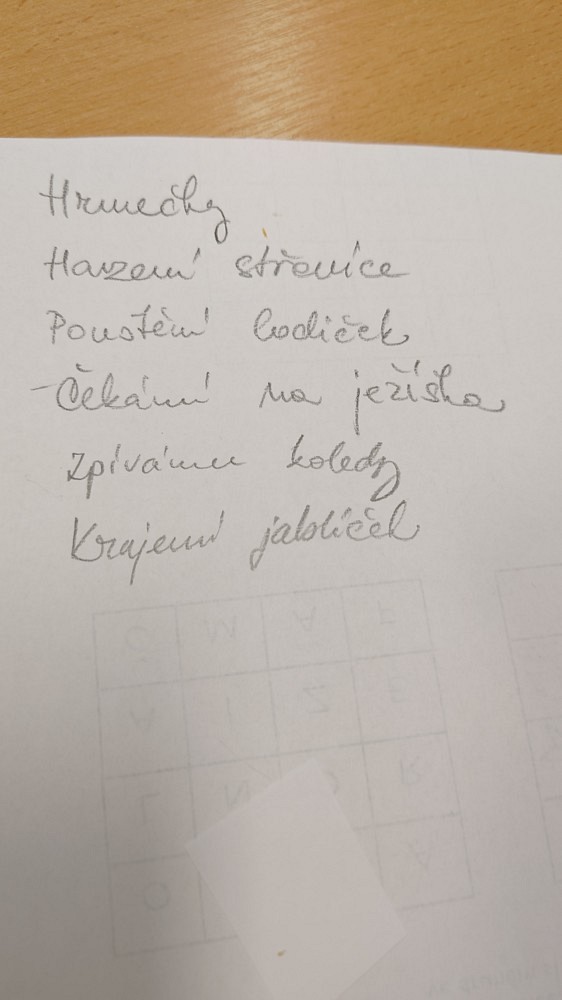 Hrnečky
Házení střevíce
Pouštění lodiček
Čekání na ježíška
Zpívánu koledy
Krájení jabliček